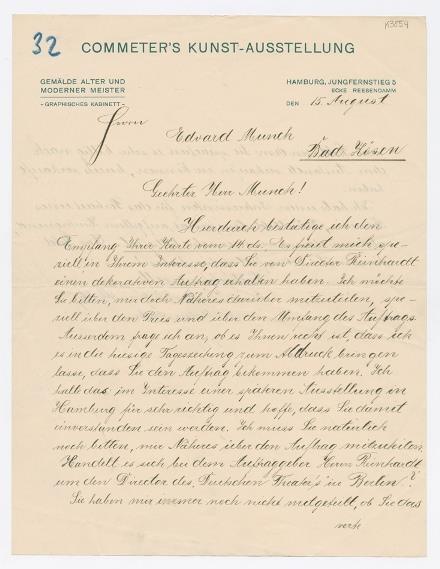 K3854
32
COMMETER'S KUNST-AUSSTELLUNG
GEMÄLDE ALTER UND
MODERNER MEISTER
- GRAPHISCHES KABINETT -
HAMBURG, JUNGFERNSTIEG 5
ECKE REESENDAMM
DEN 15. August
Herrn
Edvard Munch
Bad Kösen
Geehrter Herr Munch!
Hierdurch bestätige ich den
Empfang Ihrer Karte vom 14. ds. Es freut mich spe-
ziell in Ihrem Interesse, dass Sie von Director Reinhardt
einen dekorativen Auftrag erhalten haben. Ich möchte
Sie bitten, mir doch Näheres darüber mitzuteilen, spe-
ziell über den Preis und über den Umfang des Auftrags.
Ausserdem frage ich an, ob es Ihnen recht ist, dass ich
es in die hiesige Tageszeitung zum Abdruck bringen
lasse, dass Sie den Auftrag bekommen haben. Ich
halte das im Interesse einer späteren Ausstellung in
Hamburg für sehr richtig und hoffe, dass Sie damit
einverstanden sein werden. Ich muss Sie natürlich
noch bitten, mir Näheres über den Auftrag mitzuteilen.
Handelt es sich bei dem Auftraggeber Herrn Reinhardt
um den Director des Deutschen Theater's in Berlin?
Sie haben mir immer noch nicht mitgeteilt, ob Sie das